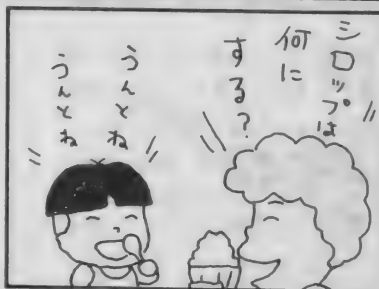 シロップは
何に
する?
うんとね
うんとね